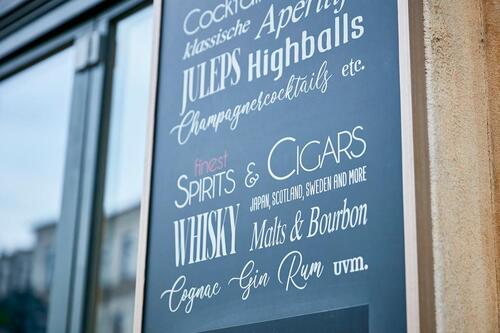 Cocktail
klassische Aperitif
JULEPS Highballs
Champagnercocktails etc.
finest
SPIRITS & CIGARS
WHISKY JAPAN, SCOTLAND, SWEDEN AND MORE
Malts & Bourbon
Cognac Gin Rum uvm.